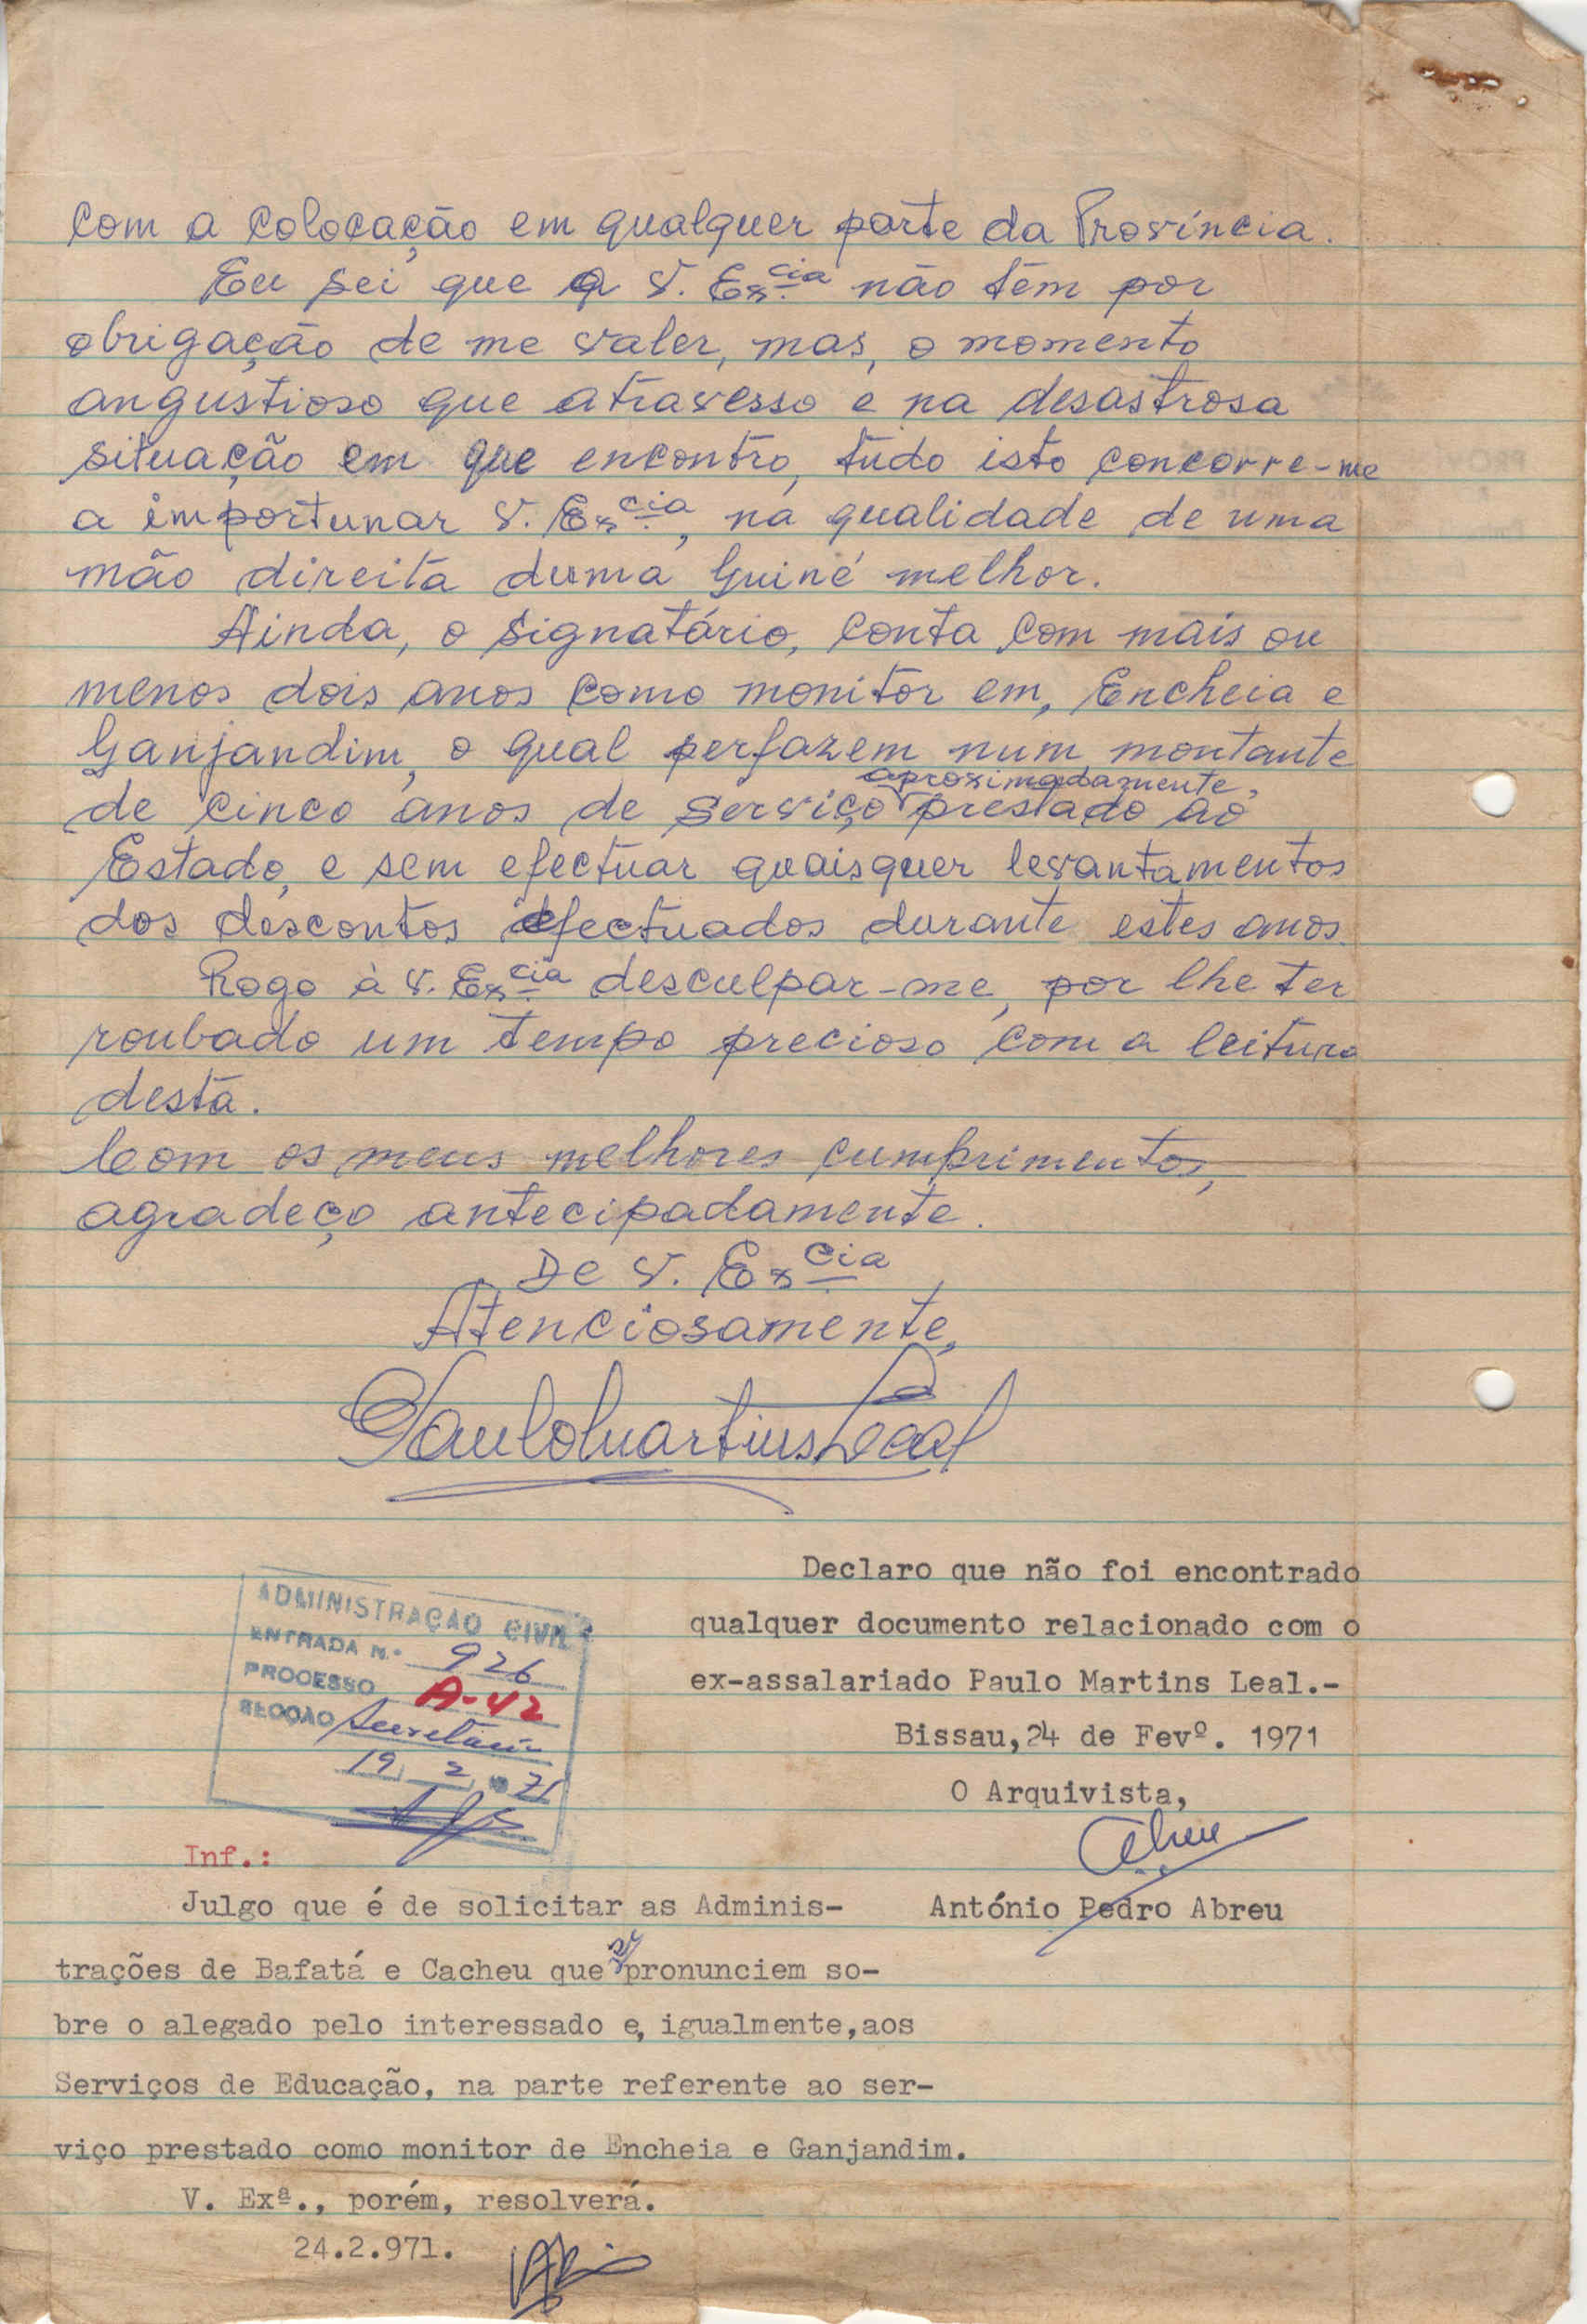 com a colocação em qualquer parte da Província.
Eu sei que a V. Ex.cia não têm por
obrigação de me valer, mas, o momento
angustioso que atravesso e na desastrosa
situação em que encontro, tudo isto concorre-me
a importunar V. Ex.cia, na qualidade de uma
mão direita duma Guiné melhor.
Ainda, o signatário, conta com mais ou
menos dois anos como monitor em, Encheia e
Ganjandim, o qual perfazem num montante
de cinco anos de serviço aproximadamente, prestado ao
Estado, e sem efectuar quaisquer levantamentos
dos descontos efectuados durante estes anos.
Rogo à V. Ex.cia desculpar-me, por lhe ter
roubado um tempo precioso com a leitura
desta.
Com os meus melhores cumprimentos,
agradeço antecipadamente.
De V. Ex.cia
Atenciosamente,
Paulo Martins Leal
Declaro que não foi encontrado
qualquer documento relacionado com o
ex-assalariado Paulo Martins Leal.-
Bissau,24 de Fevº. 1971
O Arquivista,
Abreu
António Pedro Abreu
ADMINISTRAÇÃO CIVIL
ENTRADA N.º 926
PROCESSO A-42
SECÇÃO Secretaria
19 2 71
Inf.:
Julgo que é de solicitar as Adminis-
trações de Bafatá e Cacheu que se pronunciem so-
bre o alegado pelo interessado e, igualmente,aos
Serviços de Educação, na parte referente ao ser-
viço prestado como monitor de Encheia e Ganjandim.
V. Exª., porém, resolverá.
24.2.971.